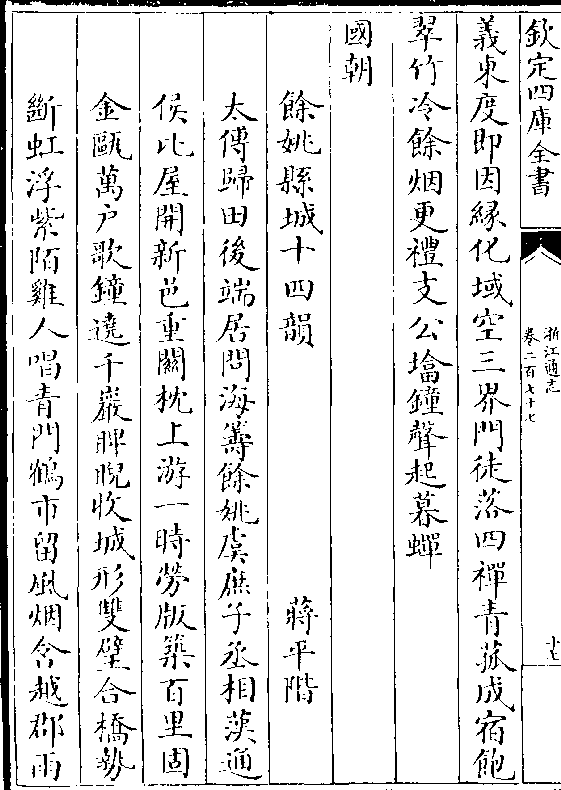 欽定四庫全書
浙江通志
卷二百七十七
十七
義東度即因緣化域空三界門徒落四禪青菰成宿飽
翠竹冷餘烟更禮支公墖鐘聲起暮蟬
國朝
餘姚縣城十四韻 蔣平階
太傅歸田後端居問海籌餘姚虞庶子丞相漢通
侯比屋開新邑重關枕上游一時勞版築百里固
金甌萬户歌鐘遶千巖睥睨收城形雙壁合橋勢
斷虹浮紫陌雞人唱青門鶴市留風烟含越郡雨